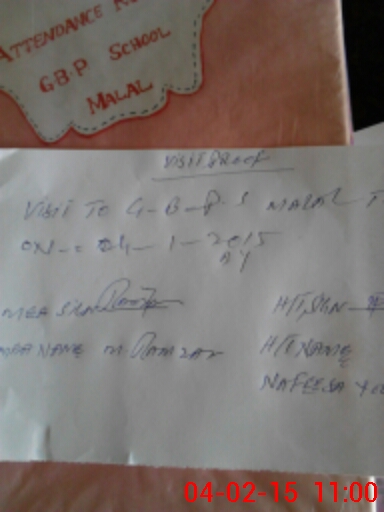 ATTENDANCE
G.B.P SCHOOL
MALAL
VISIT PROOF
VISIT TO G-B-P-S MALAL T
ON-: 04-1-2015
BY
MEA SIGN
HT, SIGN
MEA NAME M. RAMZAN
HT NAME
NAFEESA
04-02-15 11:00